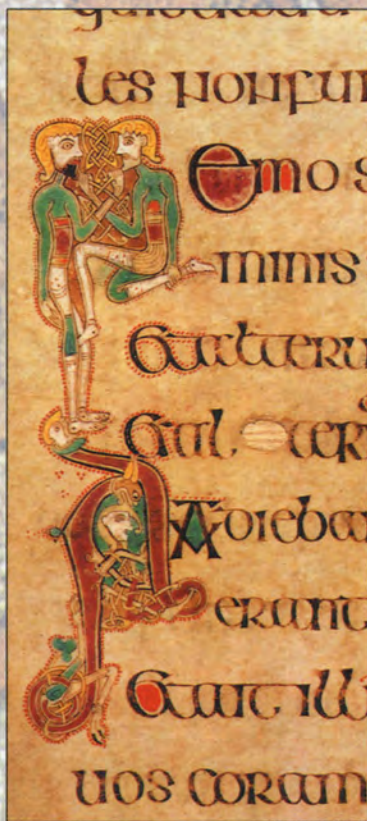 les non fui
Nemo s
minis
Et alteru
Et al ter
Audieba
erant
Et ait illi
uos coram